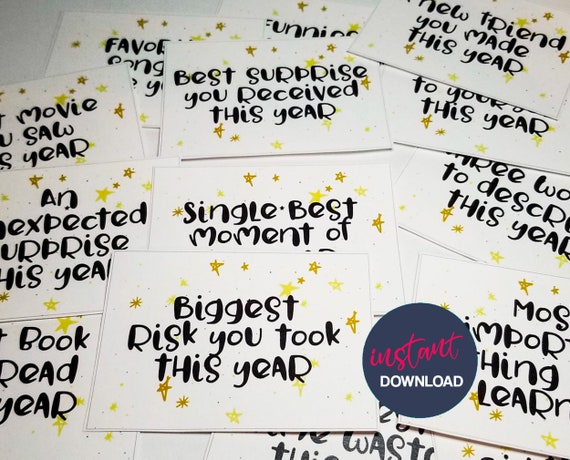 FAVORI
Song
Funnie
new friend
you made
this year
Best surprise
you received
this year
to your
this year
movie
saw
this year
An
nexpected
urprise
this year
Single Best
moment of
Three wo
to descri
this year
Biggest
Risk you took
this year
Book
Read
year
Mos
import
thing
Learn
instant
DOWNLOAD
waste